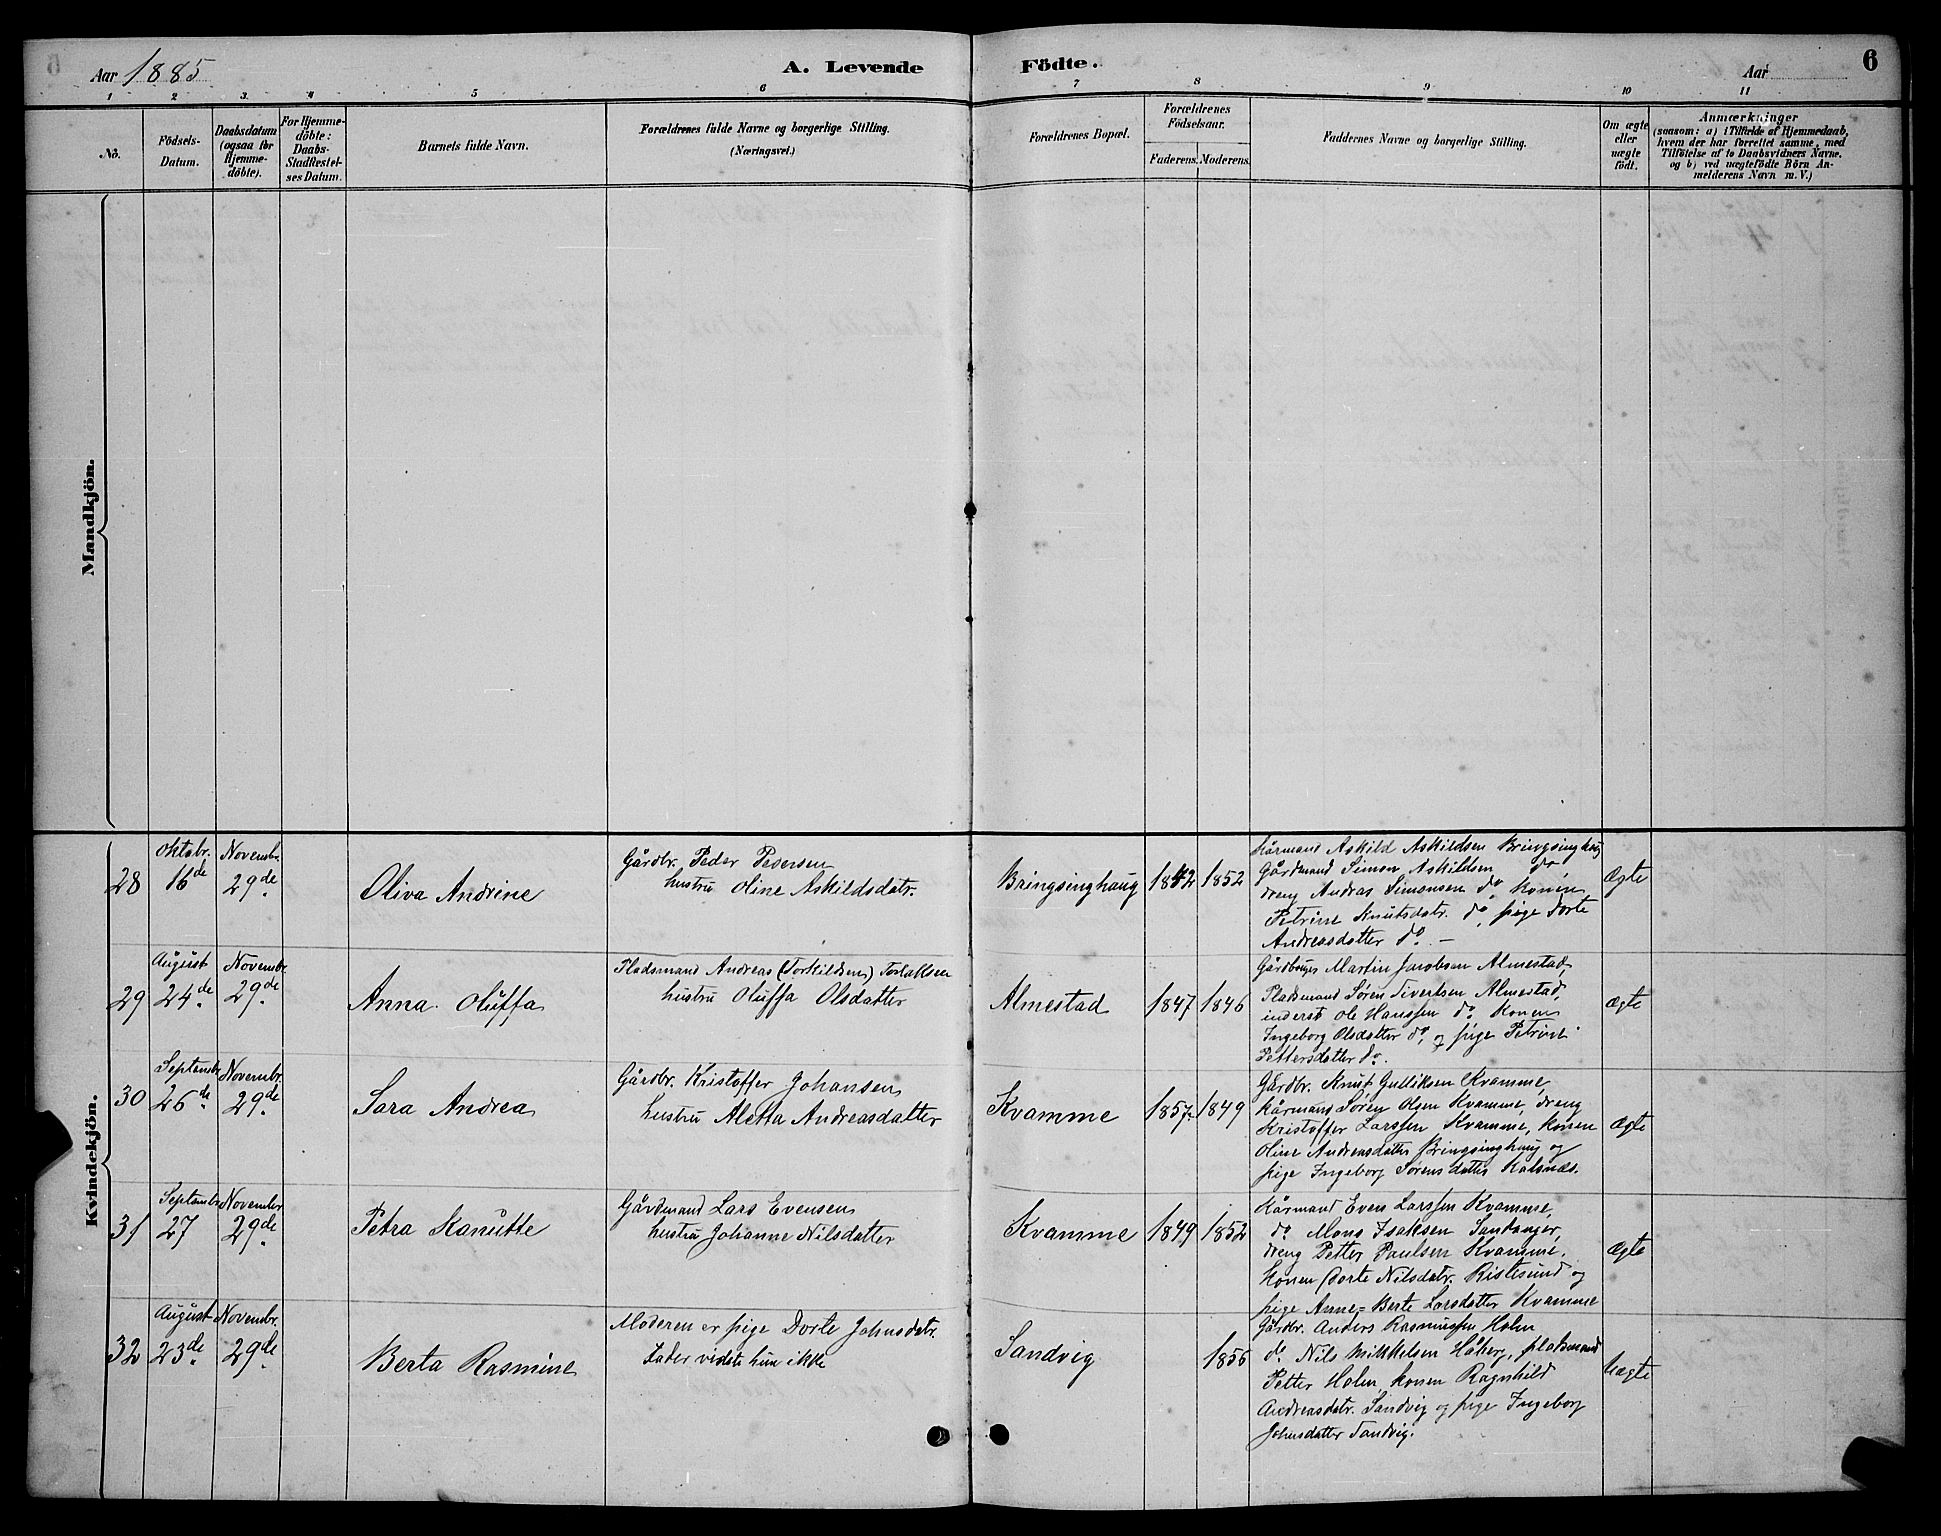 Aar 1885
A. Levende Födte.
Aar
6
1 2 3 4 5 6 7 8 9 10 11
No.
Födsels-
Datum.
Daabsdatum
(ogsaa for
Hjemme-
döbte).
For Hjemme-
döbte:
Daabs-
Stadfæstel-
ses Datum.
Barnets fulde Navn.
Forældrenes fulde Navne og borgerlige Stilling.
(Næringsvei.)
Forældrenes Bopæl.
Forældrenes
Födselsaar.
Faderens. Moderens.
Faddernes Navne og borgerlige Stilling.
Om ægte
eller
uægte
födt.
Anmærkninger
(saasom: a) i Tilfælde af Hjemmedaab,
hvem der har forrettet samme, med
Tilföielse af to Daabsvidners Navne.
og b) ved uægtefödte Börn An-
melderens Navn m. V.)
Mandkjön.
Kvindekjön.
28
Oktobr.
16de
Novembr.
29de
Oliva Andrine
Gårdbr. Peder Pedersen
hustru Oline Askildsdatr.
Bringsinghaug
1842
1852
Kårmand Askild Askildsen Bringsinghaug
Gårdmand Simon Askildsen do
dreng Andras Simonsen do konen
Petrine Knutsdatr. do, pige Dorte
Andreasdatter do. —
Ægte
29
August
24de
Novembr.
29de
Anna Oluffa
Pladsmand Andreas (Torkildsen) Torlaksen
hustru Oluffa Olsdatter
Almestad
1847
1846
Gårdbruger Martin Jacobsen Almestad,
Pladsmand Søren Sivertsen Almestad,
inderst Ole Hanssen do Konen
Ingeborg Olsdatter do, og pige Petrine
Pettersdatter do.
Ægte
30
Septembr.
26de
Novembr.
29de
Sara Andrea
Gårdbr. Kristoffer Johansen
hustru Aletta Andreasdatter
Kvamme
1857
1849
Gårdbr. Knut Gulliksen Kvamme,
kårmand Søren Olsen Kvamme, dreng
Kristoffer Larssen Kvamme, konen
Oline Andreasdatter Bringsinghaug og
pige Ingeborg Sørensdatter Kalsnæs.
Ægte
31
Septembr.
27
November
29de
Petra Kanutte
Gårdmand Lars Evensen
hustru Johanne Nilsdatter
Kvamme
1849
1852
Kårmand Even Larssen Kvamme,
do Mons Isaksen Sandanger,
dreng Petter Paulsen Kvamme.
Konen Dorte Nilsdatr. Ristesund og
pige Anne-Berte Larsdatter Kvamme
Ægte
32
August
23de
Novembr.
29de
Berta Rasmine
Moderen er pige Dorte Johnsdatr.
Fader vidste hun ikke
Sandvig
1856
Gårdbr. Anders Rasmussen Holm
do. Nils Mikkelsen Håberg, pladsmand
Petter Holm, konen Ragnhild
Andreasdatr. Sandvig og pige Ingeborg
Johnsdatter Sandvig.
Uægte